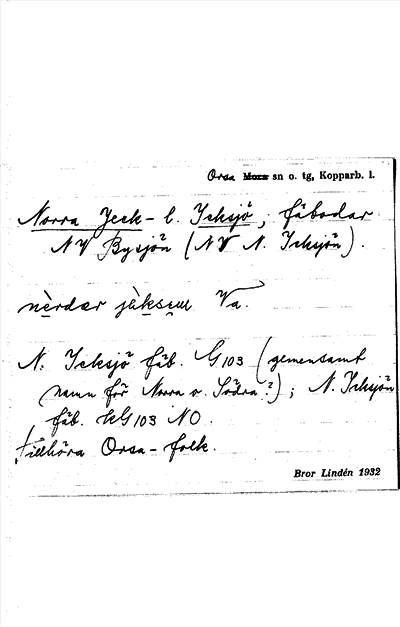 Orsa Mora sn o. tg, Kopparb. l.
Norra Jeck- l. Icksjö, fäbodar
NV Bysjön (NV N. Icksjön).
nèrdær jàksæm Va.
N. Icksjö fäb. G103 (gemensamt
namn för Norra o. Södra?); N. Icksjön
fäb. kG103 NO.
Tillhöra Orsa-folk.
Bror Lindén 1932